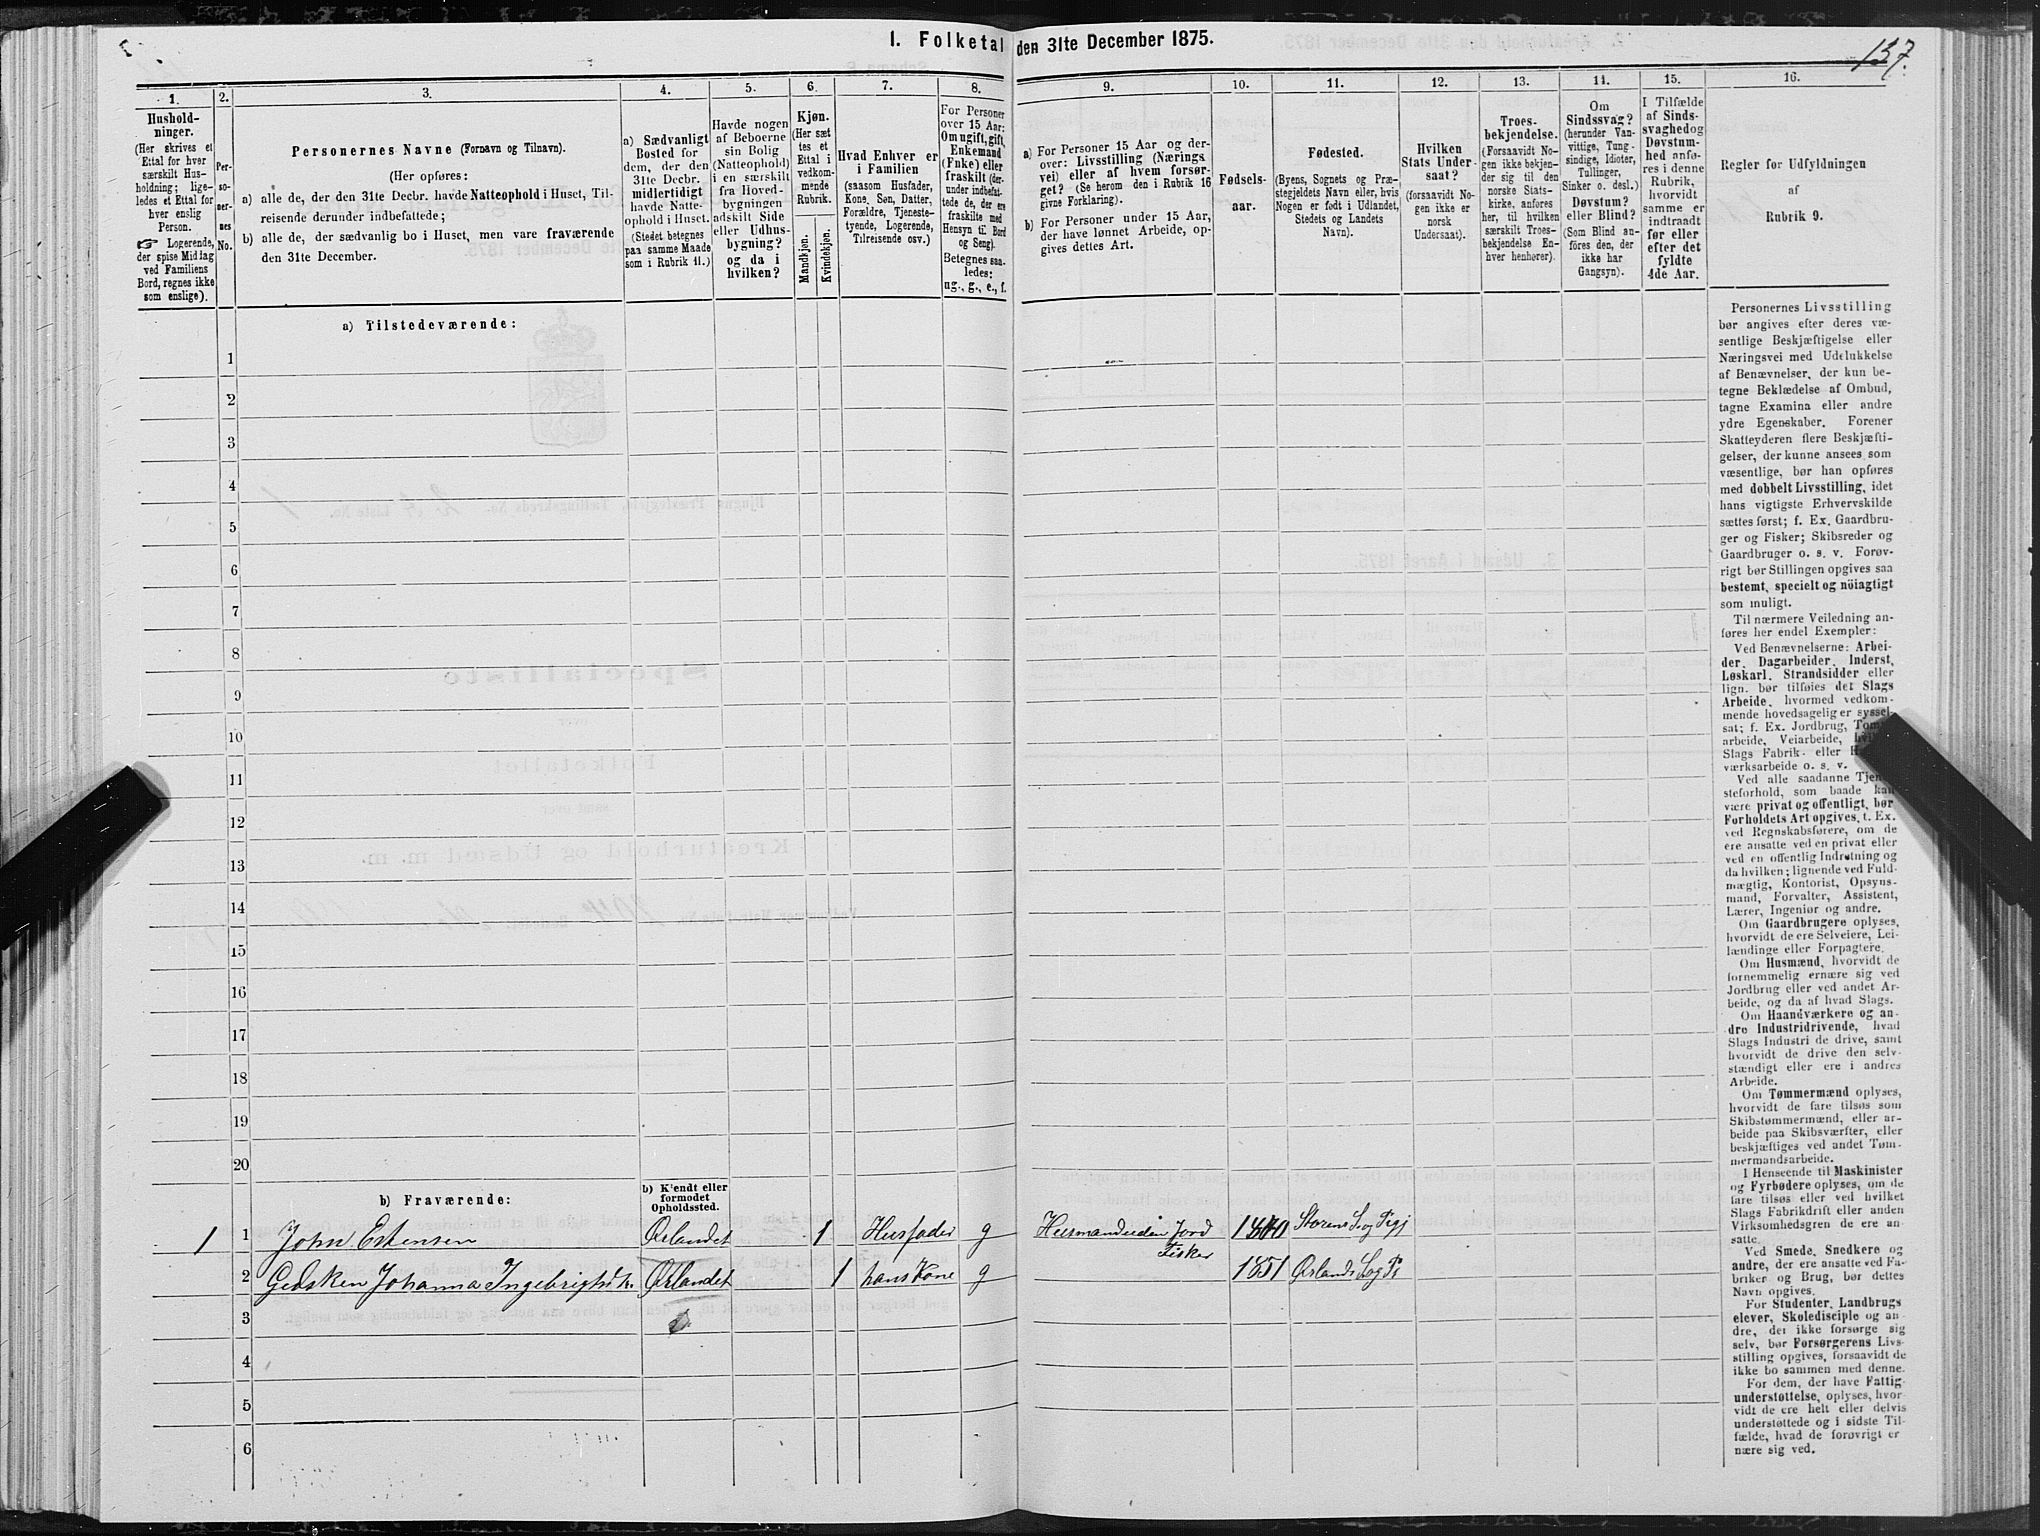 I. Folketal den 31te December 1875.
137.
1.
2.
3.
4.
5.
6.
7.
8.
9.
10.
11.
12.
13.
14.
15.
16.
Hushold-
ninger.
(Her skrives et
Ettal for hver
særskilt Hus-
holdning; lige-
ledes et Ettal for
hver enslig
Person.
☞ Logerende,
der spise Middag
ved Familiens
Bord, regnes ikke
som enslige).
Per-
so-
ner-
nes
No.
Personernes Navne (Fornavn og Tilnavn).
(Her opføres:
a) alle de, der den 31te Decbr. havde Natteophold i Huset, Til-
reisende derunder indbefattede;
b) alle de, der sædvanlig bo i Huset, men vare fraværende
den 31te December.
a) Sædvanligt
Bosted for
dem, der den
31te Decbr.
midlertidigt
havde Natte-
ophold i Huset.
(Stedet betegnes
paa samme Maade
som i Rubrik 11.)
Havde nogen
af Beboerne
sin Bolig
(Natteophold)
i en særskilt
fra Hoved-
bygningen
adskilt Side
eller Udhus-
bygning?
og da i
hvilken?
Kjøn.
(Her sæt
tes et
Ettal i
vedkom-
mende
Rubrik.
Mandkjøn.
Kvindekjøn.
Hvad Enhver er
i Familien
(saasom Husfader,
Kone, Søn, Datter,
Forældre, Tjeneste-
tyende, Logerende,
Tilreisende osv.)
For Personer
over 15 Aar:
Om ugift, gift,
Enkemand
(Enke) eller
fraskilt (der-
under indbefat-
tede de, der ere
fraskilte med
Hensyn til Bord
og Seng).
Betegnes saa-
ledes:
ug., g., e., f.
a) For Personer 15 Aar og der-
over: Livsstilling (Nærings
vei) eller af hvem forsør-
get? (Se herom den i Rubrik 16
givne Forklaring).
b) For Personer under 15 Aar,
der have lønnet Arbeide, op-
gives dettes Art.
Fødsels-
aar.
Fødested.
(Byens, Sognets og Præ-
stegjeldets Navn eller, hvis
Nogen er født i Udlandet,
Stedets og Landets
Navn).
Hvilken
Stats Under-
saat?
(forsaavidt No-
gen ikke er
norsk
Undersaat).
Troes-
bekjendelse.
(Forsaavidt No
gen ikke bekjen-
der sig til den
norske Stats-
kirke, anføres
her, til hvilken
særskilt Troes-
bekjendelse En-
hver henhører).
Om
Sindssvag?
(herunder Van-
vittige, Tung-
sindige, Idioter,
Tullinger,
Sinker o. desl.)
Døvstum?
eller Blind?
(Som Blind an-
føres den, der
ikke har
Gangsyn).
I Tilfælde
af Sinds-
svaghed og
Døvstum-
hed anfø-
res i denne
Rubrik,
hvorvidt
samme er
indtraadt
før eller
efter det
fyldte
4de Aar.
Regler for Udfyldningen
af
Rubrik 9.
a) Tilstedeværende:
1
2
3
4
5
6
7
8
9
10
11
12
13
14
15
16
17
18
19
20
b) Fraværende:
b) Kjendt eller
formodet
Opholdssted.
1 1 John Estensen Ørlandet 1 Husfader g Husmand uden Jord Fisker 1840 Storens S. og Pgj
2 Gedsken Johanna Ingebrigtsdtr. Ørlandet 1 hans Kone g 1851 Ørlands S. og P.
3
4
5
6
Personernes Livsstilling
bør angives efter deres væ-
sentlige Beskjæftigelse eller
Næringsvei med Udelukkelse
af Benævnelser, der kun be-
tegne Beklædelse af Ombud,
tagne Examina eller andre
ydre Egenskaber. Forener
Skatteyderen flere Beskjæfti-
gelser, der kunne ansees som
væsentlige, bør han opføres
med dobbelt Livsstilling, idet
hans vigtigste Erhvervskilde
sættes først; f. Ex. Gaardbru-
ger og Fisker; Skibsreder og
Gaardbruger o. s. v. Forøv-
rigt bør Stillingen opgives saa
bestemt, specielt og nöiagtigt
som muligt.
Til nærmere Veiledning an-
føres her endel Exempler:
Ved Benævnelserne: Arbei-
der, Dagarbeider, Inderst,
Løskarl, Strandsidder eller
lign. bør tilføies det Slags
Arbeide, hvormed vedkom-
mende hovedsagelig er syssel-
sat; f. Ex. Jordbrug,
arbeide, Veiarbeide,
Slags Fabrik- eller
værksarbeide o. s. v.
Ved alle saadanne Tjene-
steforhold, som baade kan
være privat og offentligt, bør
Forholdets Art opgives, t. Ex.
ved Regnskabsførere, om de
ere ansatte ved en privat eller
ved en offentlig Indretning og
da hvilken; lignende ved Fuld-
mægtig, Kontorist, Opsyns-
mand, Forvalter, Assistent,
Lærer, Ingeniør og andre.
Om Gaardbrugere oplyses,
hvorvidt de ere Selveiere, Lei-
lændinge eller Forpagtere.
Om Husmænd, hvorvidt de
fornemmelig ernære sig ved
Jordbrug eller ved andet Ar-
beide, og da af hvad Slags.
Om Haandværkere og an-
dre Industridrivende, hvad
Slags Industri de drive, samt
hvorvidt de drive den selv-
stændigt eller ere i andres
Arbeide.
Om Tømmermænd oplyses,
hvorvidt de fare tilsøs som
Skibstømmermænd, eller ar-
beide paa Skibsværfter, eller
beskjæftiges ved andet Tøm-
mermandsarbeide.
I Henseende til Maskinister
og Fyrbødere oplyses, om de
fare tilsøs eller ved hvilket
Slags Fabrikdrift eller anden
Virksomhedsgren de ere an-
satte.
Ved Smede, Snedkere og
andre, der ere ansatte ved Fa-
briker og Brug, bør dettes
Navn opgives.
For Studenter, Landbrugs
elever, Skoledisciple og an-
dre, der ikke forsørge sig
selv, bør Forsørgerens Livs-
stilling opgives, forsaavidt de
ikke bo sammen med denne.
For dem, der have Fattig-
understøttelse, oplyses, hvor-
vidt de ere helt eller delvis
understøttede og i sidste Til-
fælde, hvad de forøvrigt er
nære sig ved.